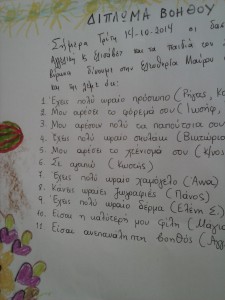 ΔΙΠΛΩΜΑ ΒΟΗΘΟΥ
Σήμερα Τρίτη 14-10-2014 οι δασ
Αγγελική κι Ελισάβετ και τα παιδιά του
δίνουμε στην Ελευθερία Μαύρου
και της λέμε ότι:
1 Έχεις πολύ ωραίο πρόσωπο (Ρήγας, Κω
2 Μου αρέσει το φόρεμά σου (Ιωσήφ,
3 Μου αρέσουν πολύ τα παπούτσια σου
4 Έχεις πολύ ωραία σκουλαρ (Βικτώρια
5 Μου αρέσει το χτένισμά σου (Κ/νος
6 Σε αγαπώ (Κωστής)
7 Έχεις πολύ ωραίο χαμόγελο (Άννα)
8 Κάνεις ωραίες ζωγραφιές (Πάνος)
9 Έχεις πολύ ωραίο δέρμα (Ελένη Σ.)
10 Είσαι η καλύτερή μου φίλη (Μάγια
11 Είσαι ανεπανάληπτη βοηθός (Αγγ